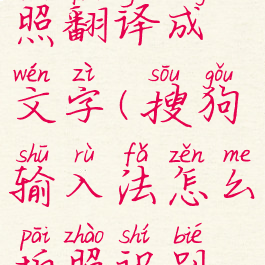 照翻译成
wén zì sōu gǒu
文字(搜狗
shū rù fǎ zěn me
输入法怎么
pāi zhào shí bié
拍照识别